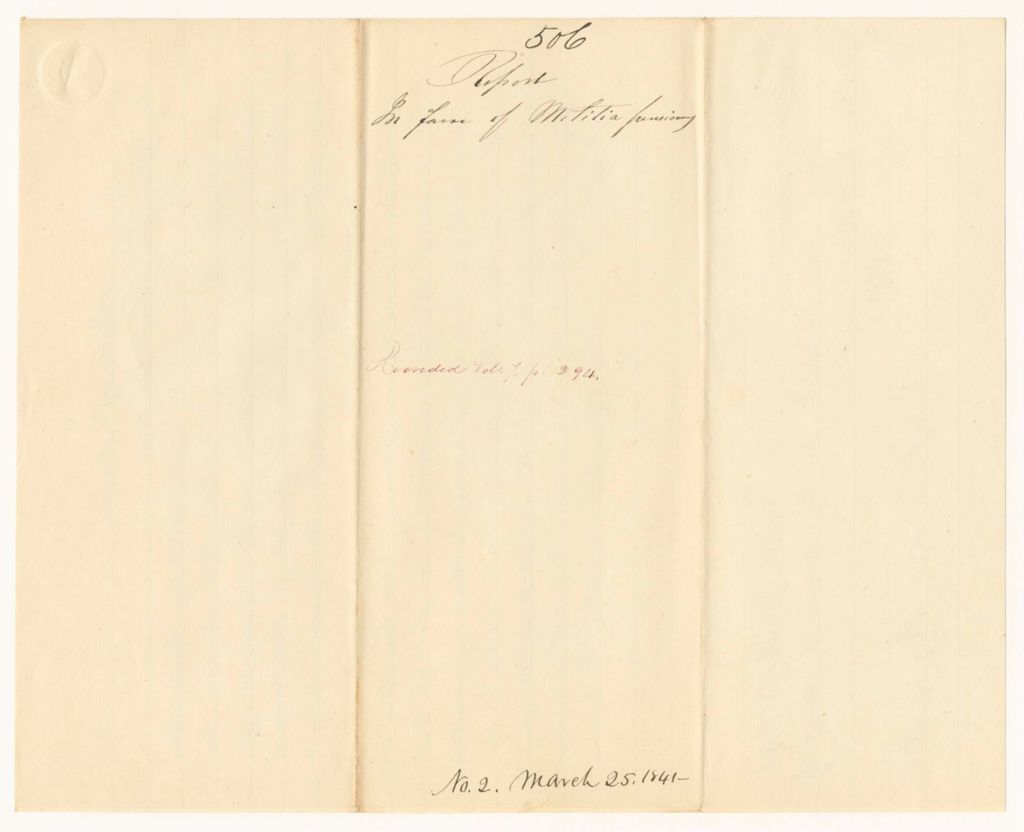 506
Report
In favor of Militia pensions
Recorded Vol. 7. p. 294.
No. 2. March 25. 1841-